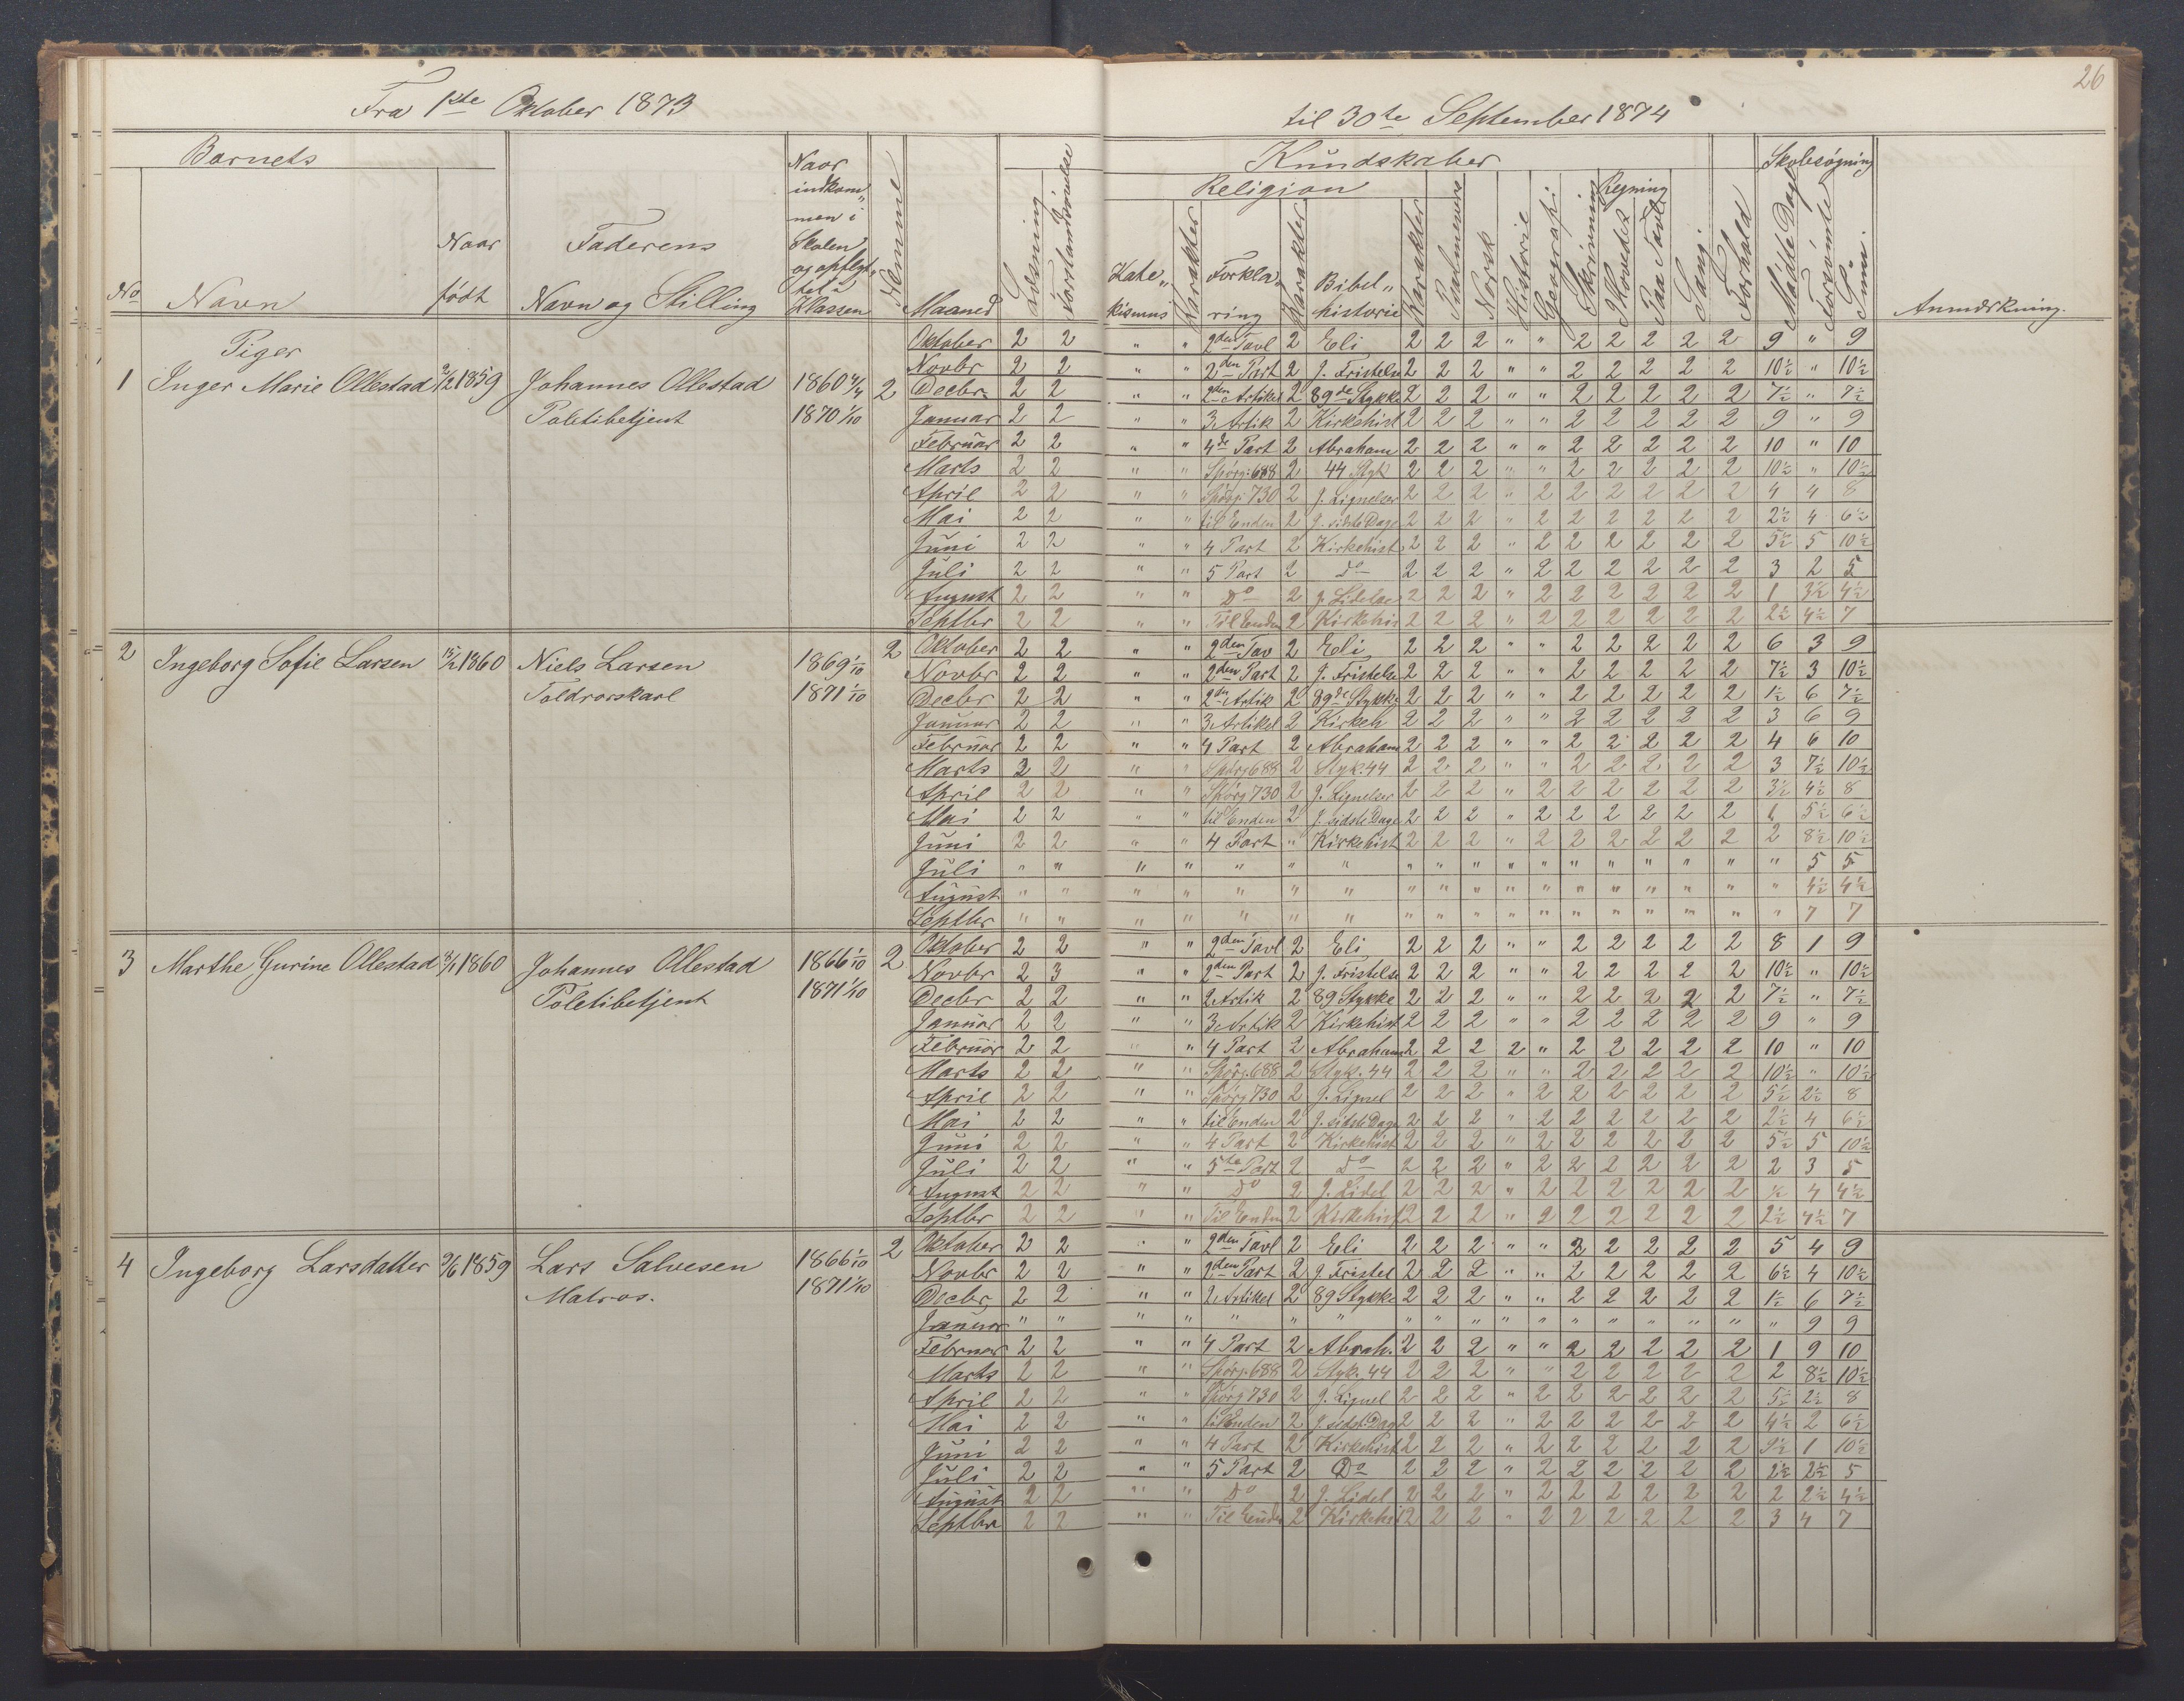 26
Fra 1ste Oktober 1873 til 30te September 1874
Barnets
No
Navn
Naar født
Faderens
Navn og Stilling
Naar indkom„
men i
Skolen
og opflyt„
tet i
Klassen
Maaned
Læsning
Kundskaber
Religion
Kate„
kismus
Karakter
Forkla„
ring
Karakter
Bibel„
historie
Karakter
Psalmevers
Norsk
Historie
Geografi
Skrivning
Regning
Hoved
Paa Tavle
Sang
Forhold
Skolesøgning
Mødte Dage
Forsømte
Sum.
Anmærkning.
Piger
1 Inger Marie Ollestad 1859 Johannes Ollestad 1860 2
Politibetjent 1870 1/10
Oktober 2 2 " " 2den Tavl 2 Eli 2 2 2 " " 2 2 2 2 2 9 " 9
Novbr 2 2 " " 2den Part 2 J. Fristelse 2 2 2 " " 2 2 2 2 2 10½ " 10½
Decbr 2 2 " " 2den Artikel 2 89de Stykke 2 2 2 " " 2 2 2 2 2 7½ " 7½
Januar 2 2 " " 3 Artik 2 Kirkehist 2 2 2 " " 2 2 2 2 2 9 " 9
Februar 2 2 " " 4de Part 2 Abraham 2 2 2 " " 2 2 2 2 2 10 " 10
Marts 2 2 " " Spørg: 688 2 44 Styk 2 2 2 " " 2 2 2 2 2 10½ " 10½
April 2 2 " " Spørg: 730 2 J. Lignelser 2 2 2 " 2 2 2 2 2 2 4 4 8
Mai 2 2 " " til Enden 2 J. sidste Dage 2 2 2 " 2 2 2 2 2 2 2½ 4 6½
Juni 2 2 " " 4 Part 2 Kirkehist 2 2 2 " 2 2 2 2 2 2 5½ 5 10½
Juli 2 2 " " 5 Part 2 Do 2 2 2 " 2 2 2 2 2 2 3 2 5
August 2 2 " " Do 2 J. Lidelse 2 2 2 " 2 2 2 2 2 2 1 3½ 4½
Septbr 2 2 " " Til Enden 2 Kirkehis 2 2 2 " 2 2 2 2 2 2 2½ 4½ 7
2 Ingeborg Sofie Larsen 1860 Niels Larsen 1869 1/10 2
Toldrorskarl 1871 1/10
Oktober 2 2 " " 2den Tav 2 Eli 2 2 2 " " 2 2 2 2 2 6 3 9
Novbr 2 2 " " 2den Part 2 J. Fristelse 2 2 2 " " 2 2 2 2 2 7½ 3 10½
Decbr 2 2 " " 2den Artik 2 89de Stykke 2 2 2 " " 2 2 2 2 2 1½ 6 7½
Januar 2 2 " " 3 Artikel 2 Kirkeh 2 2 2 " " 2 2 2 2 2 3 6 9
Februar 2 2 " " 4 Part 2 Abraham 2 2 2 " " 2 2 2 2 2 4 6 10
Marts 2 2 " " Spørg 688 2 Styk. 44 2 2 2 " " 2 2 2 2 2 3 7½ 10½
April 2 2 " " Spørg 730 2 J. Lignelser 2 2 2 " 2 2 2 2 2 2 3½ 4½ 8
Mai 2 2 " " til Enden 2 J. sidste Dage 2 2 2 " 2 2 2 2 2 2 1 5½ 6½
Juni 2 2 " " 4 Part " Kirkehist 2 2 2 " 2 2 2 2 2 2 2 8½ 10½
Juli " " " " " " " " " " " " " " " " " " " 5 5
August " " " " " " " " " " " " " " " " " " " 4½ 4½
Septbr " " " " " " " " " " " " " " " " " " " 7 7
3 Marthe Gurine Ollestad 1860 Johannes Ollestad 1866 1/10 2
Politibetjent 1871 1/10
Oktober 2 2 " " 2den Tavl 2 Eli 2 2 2 " " 2 2 2 2 2 8 1 9
Novbr 2 3 " " 2den Part 2 J. Fristelse 2 2 2 " " 2 2 2 2 2 10½ " 10½
Decbr 2 2 " " 2 Artik 2 89 Stykke 2 2 2 " " 2 2 2 2 2 7½ " 7½
Januar 2 2 " " 3 Artik 2 Kirkehist 2 2 2 " " 2 2 2 2 2 9 " 9
Februar 2 2 " " 4 Part 2 Abraham 2 2 2 2 " 2 2 2 2 2 10 " 10
Marts 2 2 " " Spørg. 688 2 Styk. 44 2 2 2 " " 2 2 2 2 2 10½ " 10½
April 2 2 " " Spørg 730 2 J. Lignel 2 2 2 " 2 2 2 2 2 2 5½ 2½ 8
Mai 2 2 " " til Enden 2 J. sidste Dage 2 2 2 " 2 2 2 2 2 2 2½ 4 6½
Juni 2 2 " " 4 Part 2 Kirkehist 2 2 2 " 2 2 2 2 2 2 5½ 5 10½
Juli 2 2 " " 5te Part 2 Do 2 2 2 " 2 2 2 2 2 2 2 3 5
August 2 2 " " Do 2 J. Lidel 2 2 2 " 2 2 2 2 2 2 ½ 4 4½
Septbr 2 2 " " Til Enden 2 Kirkehist 2 2 2 " 2 2 2 2 2 2 2½ 4½ 7
4 Ingeborg Larsdatter 1859 Lars Salvesen 1866 1/10 2
Matros. 1871 1/10
Oktober 2 2 " " 2den Tavl 2 Eli 2 2 2 " " 2 2 2 2 2 5 4 9
Novbr 2 2 " " 2den Part 2 J. Fristel 2 2 2 " " 2 2 2 2 2 6½ 4 10½
Decbr 2 2 " " 2 Artikel 2 89 Stykke 2 2 2 " " 2 2 2 2 2 1½ 6 7½
Januar " " " " " " " " " " " " " " " " " " " 9 9
Februar 2 2 " " 4 Part 2 Abrah. 2 2 2 " " 2 2 2 2 2 1 9 10
Marts 2 2 " " Spørg. 688 2 Styk. 44 2 2 2 " " 2 2 2 2 2 2 8½ 10½
April 2 2 " " Spørg 730 2 J. Lignel 2 2 2 " 2 2 2 2 2 2 5½ 2½ 8
Mai 2 2 " " til Enden 2 J. sidst. Dag 2 2 2 " 2 2 2 2 2 2 4½ 2 6½
Juni 2 2 " " 4 Part 2 Kirkehist 2 2 2 " 2 2 2 2 2 2 9½ 1 10½
Juli 2 2 " " 5 Part 2 Do 2 2 2 " 2 2 2 2 2 2 2½ 2½ 5
August 2 2 " " Do 2 J. Lidel 2 2 2 " 2 2 2 2 2 2 2 2½ 4½
Septbr 2 2 " " Til Enden 2 Kirkehis 2 2 2 " 2 2 2 2 2 2 3 4 7